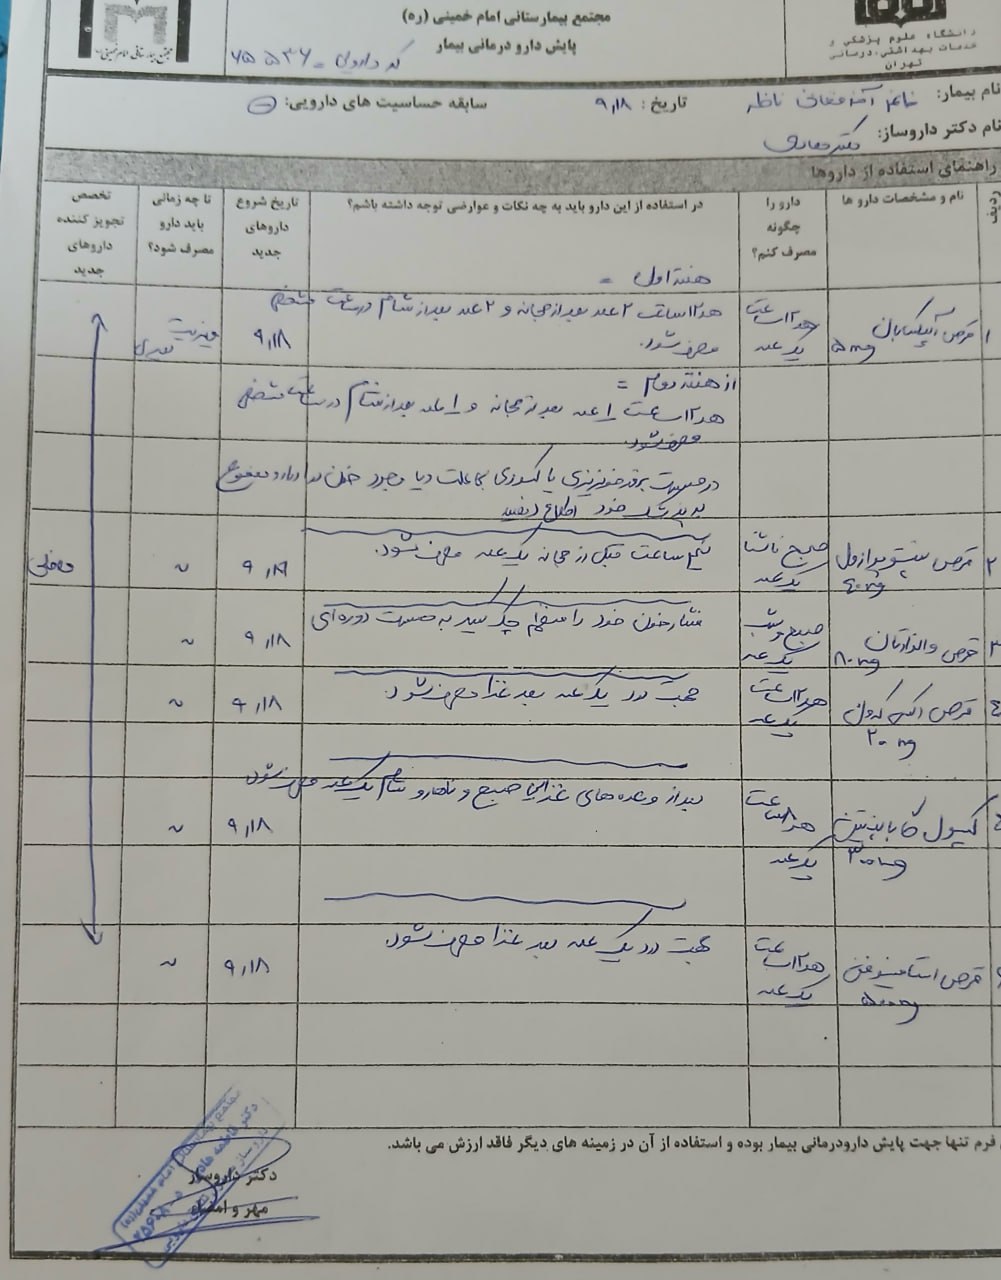 مجتمع بیمارستانی امام خمینی (ره)
پایش دارو درمانی بیمار
دانشگاه علوم پزشکی و
خدمات بهداشتی، درمانی
تهران
مجتمع بیمارستانی امام خمینی(ره)
نام بیمار: خانم
تاریخ: ۹/۱۸
سابقه حساسیت های دارویی:
نام دکتر داروساز: دکتر
راهنمای استفاده از داروها
ردیف
نام و مشخصات دارو ها
دارو را چگونه مصرف کنم؟
در استفاده از این دارو باید به چه نکات و عوارضی توجه داشته باشم؟
تاریخ شروع داروهای جدید
تا چه زمانی باید دارو مصرف شود؟
تخصص تجویز کننده داروهای جدید
هفته اول =
۱ قرص آپیکسابان 5mg
هر ۱۲ ساعت یک عدد
هر ۱۲ ساعت ۲ عدد بعد از صبحانه و ۲ عدد بعد از شام در ساعت مشخص
مصرف شود.
۹/۱۸
ویزیت بعدی
از هفته دوم =
هر ۱۲ ساعت ۱ عدد بعد از صبحانه و ۱ عدد بعد از شام در ساعت مشخص
مصرف شود.
در صورت بروز خونریزی یا کبودی بی علت و یا وجود خون در ادرار و مدفوع
به پزشک خود اطلاع دهید
۲ قرص پنتوپرازول 40mg
صبح ناشتا یک عدد
نیم ساعت قبل از صبحانه یک عدد مصرف شود.
۹/۱۸
داخلی
۳ قرص والزارتان 80mg
صبح و شب یک عدد
فشار خون خود را منظم چک کنید به صورت دوره ای
۹/۱۸
۴ قرص
20mg
هر ۱۲ ساعت یک عدد
جهت درد یک عدد بعد غذا مصرف شود.
۹/۱۸
کپسول گاباپنتین 300mg
هر ۸ ساعت یک عدد
بعد از وعده های غذایی صبح و ناهار و شام یک عدد مصرف شود
۹/۱۸
قرص استامینوفن 500mg
هر ۱۲ ساعت یک عدد
جهت درد یک عدد بعد غذا مصرف شود.
۹/۱۸
فرم تنها جهت پایش دارودرمانی بیمار بوده و استفاده از آن در زمینه های دیگر فاقد ارزش می باشد.
دکتر داروساز
مهر و امضاء